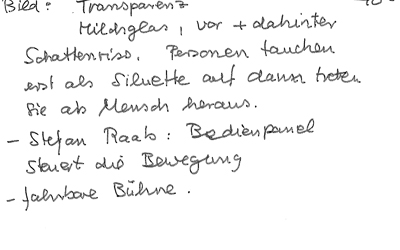 Bild: Transparenz
Milchglas, vor + dahinter
Schattenriss. Personen tauchen
erst als Siluette auf dann treten
Sie als Mensch heraus.
- Stefan Raab: Bedienpanel
steuert die Bewegung
- fahrbare Bühne.